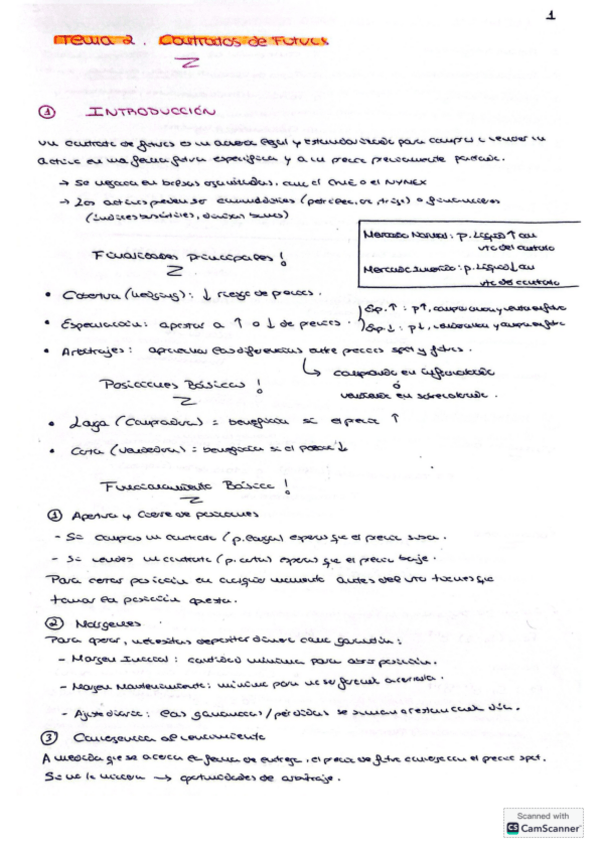 1
Tema 2. Contratos de Futuros
① INTRODUCCIÓN
Un contrato de futuros es un acuerdo legal y estandarizado para comprar o vender un
activo en una fecha futura específica y a un precio previamente pactado.
→ Se negocia en bolsas organizadas, como el CME o el NYMEX
→ Los activos pueden ser commodities (petróleo, oro, trigo) o financieros
(índices bursátiles, divisas, bonos)
Mercado Normal: p. lejano ↑ con
vto del contrato
Mercado Invertido: p. lejano ↓ con
vto del contrato
Finalidades principales!
• Cobertura (Hedging): ↓ riesgo de precios.
• Especulación: apostar a ↑ o ↓ de precios.
Esp. ↑: p↑, compro ahora y vendo en futuro
Esp. ↓: p↓, vendo ahora y compro en futuro
• Arbitrajes: aprovechar las diferencias entre precios spot y futuros.
↳ comprando en infravalorado
ó
vendiendo en sobrevalorado.
Posiciones Básicas!
• Larga (Compradora) = beneficia si el precio ↑
• Corta (Vendedora) = beneficia si el precio ↓
Funcionamiento Básico!
① Apertura y Cierre de posiciones
- Si compras un contrato (p. larga) esperas que el precio suba.
- Si vendes un contrato (p. corta) esperas que el precio baje.
Para cerrar posición en cualquier momento antes del vto tienes que
tomar la posición opuesta.
② Márgenes
Para operar, necesitas depositar dinero como garantía:
- Margen Inicial: cantidad mínima para abrir posición.
- Margen Mantenimiento: mínimo para no ser
- Ajuste diario: las ganancias/pérdidas se suman o restan cada día.
③ Convergencia al vencimiento
A medida que se acerca la fecha de entrega, el precio de futuro converge con el precio spot.
Si no lo hicieran → oportunidades de arbitraje.
Scanned with
CS CamScanner